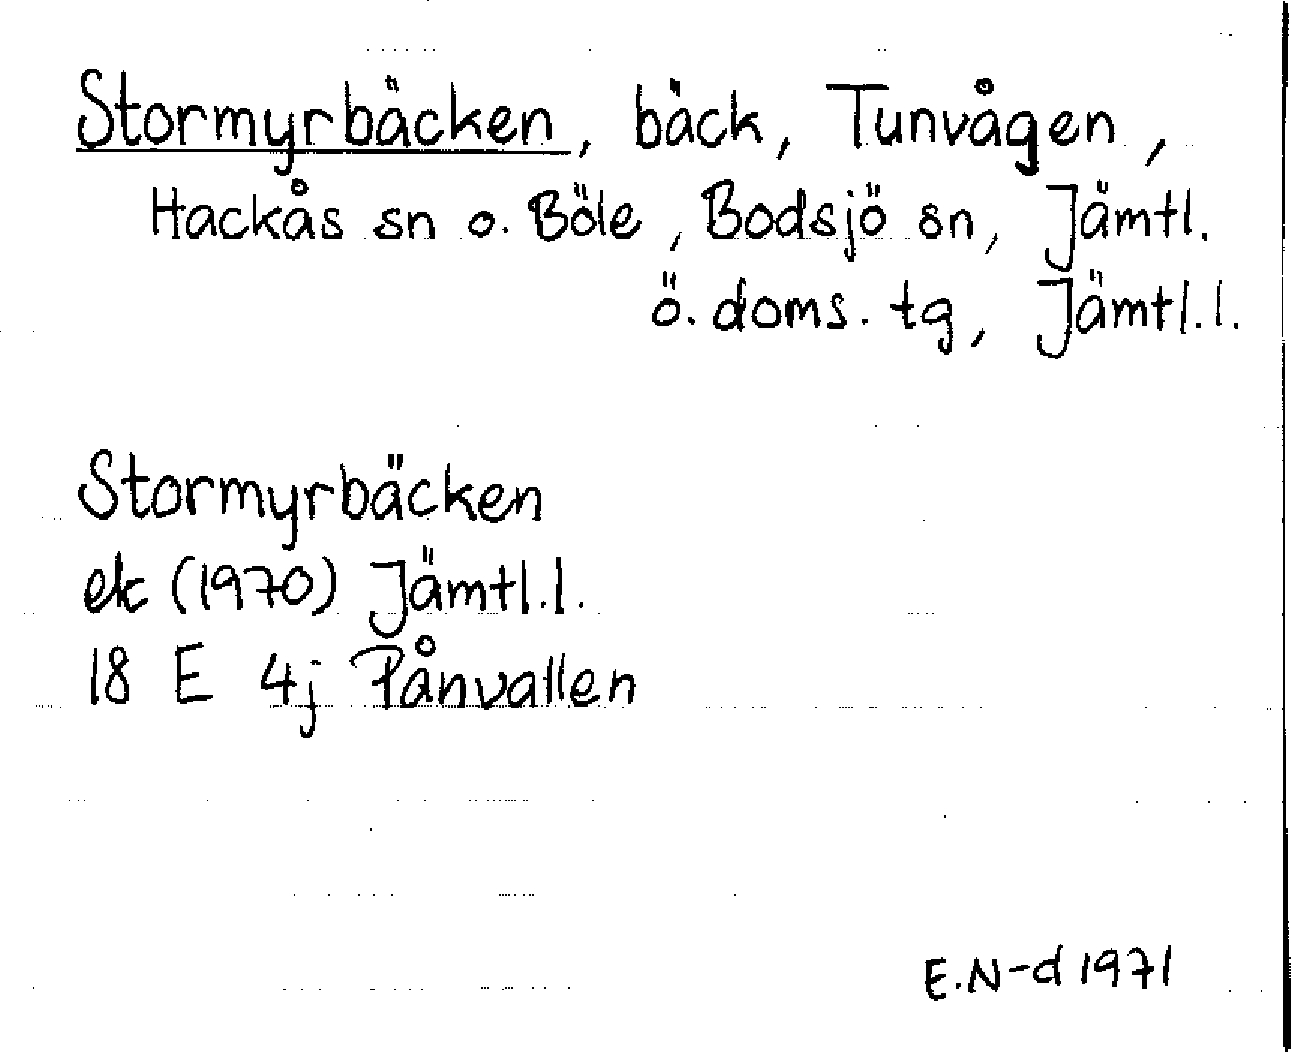 Stormyrbäcken, bäck, Tunvågen,
Hackås sn o. Böle, Bodsjö sn, Jämtl.
ö. doms. tg, Jämtl.l.
Stormyrbäcken
ek (1970) Jämtl.l.
18 E 4j Pånvallen
E.N-d 1971